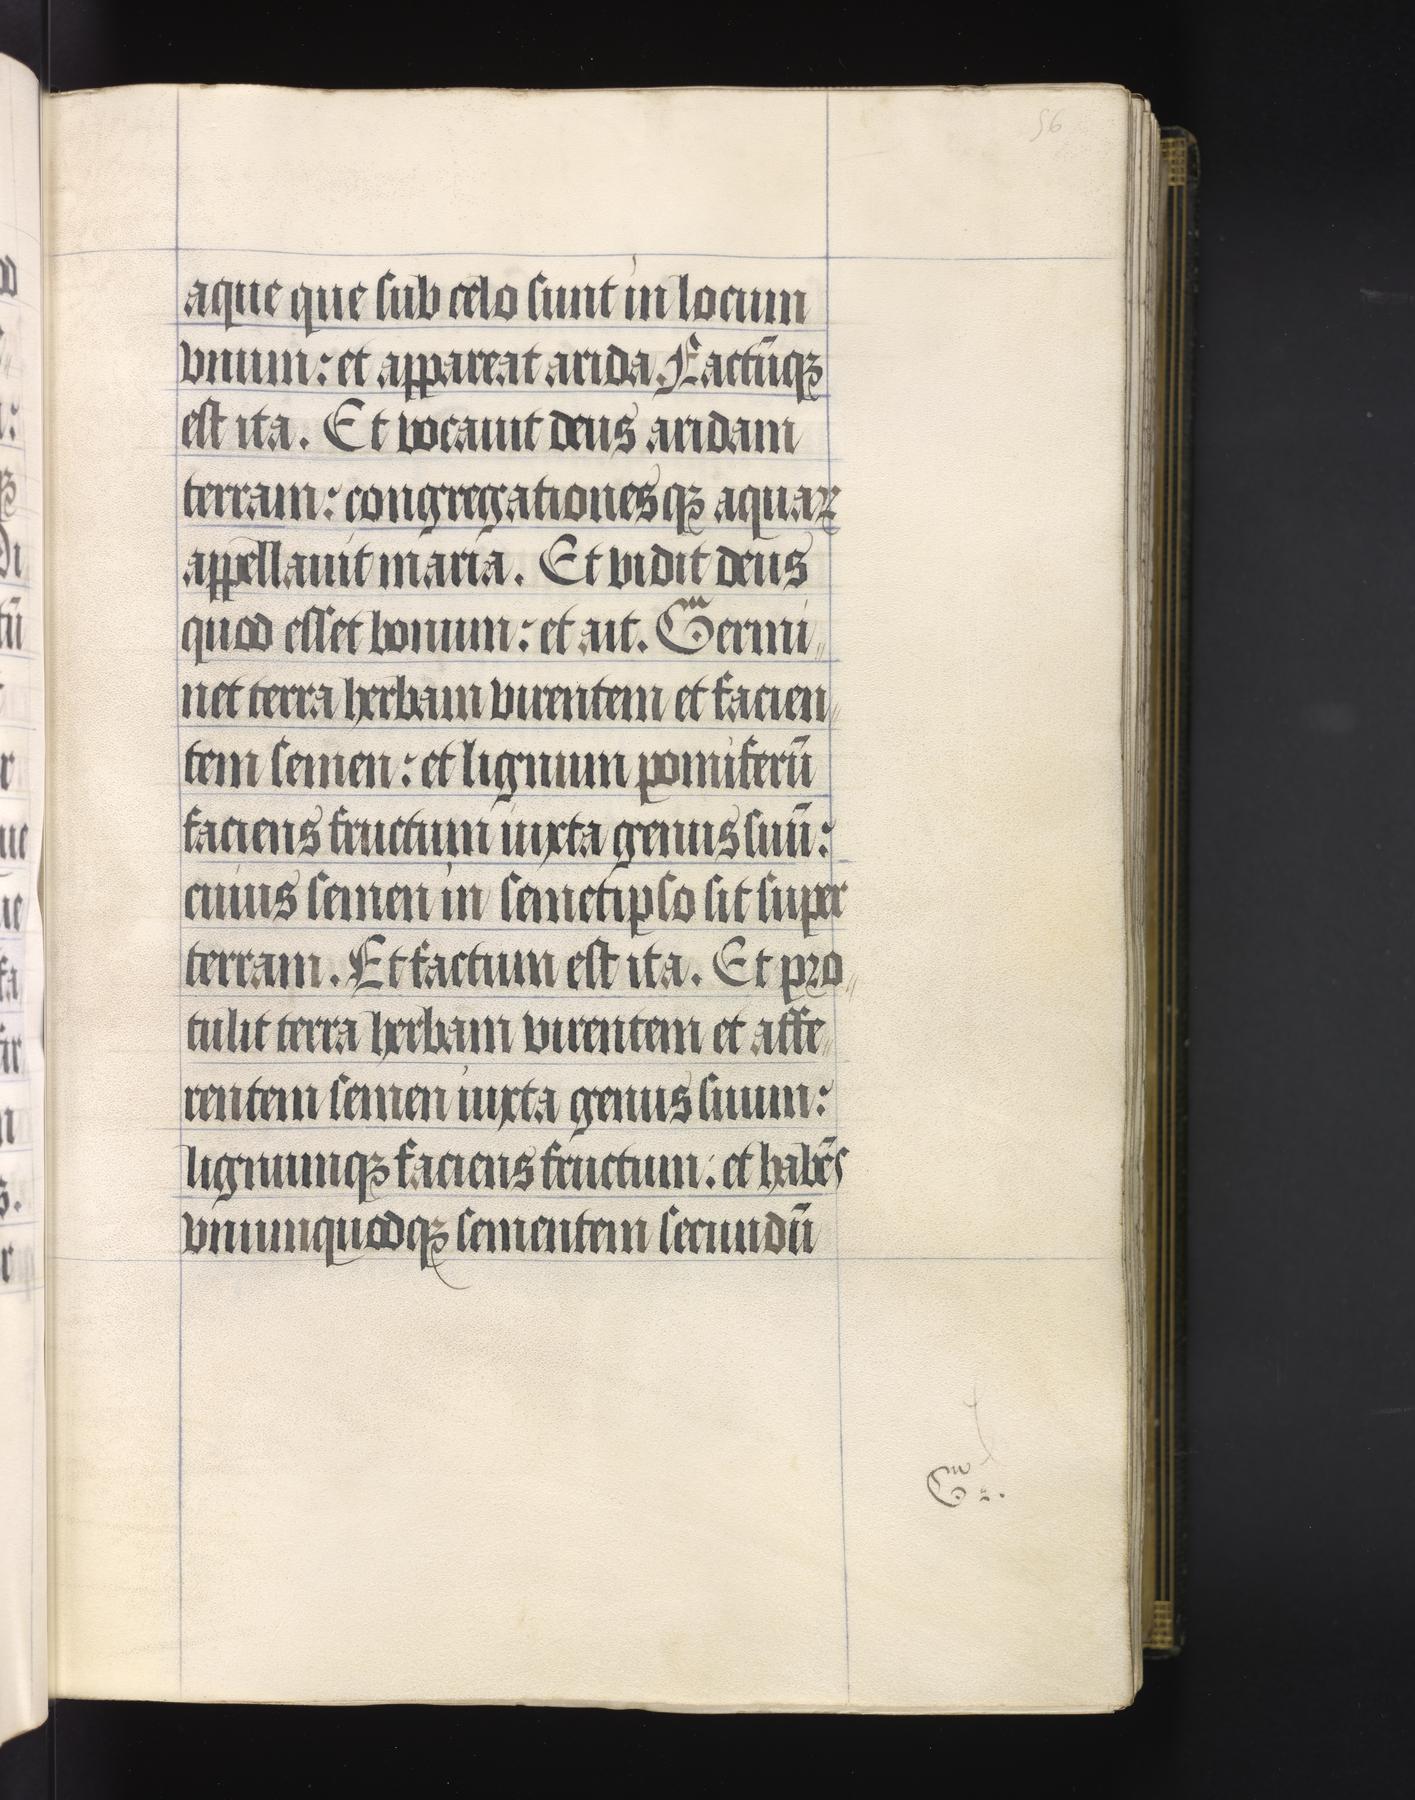 56
aque que sub celo sunt in locum
vnum: et appareat arida. Factūqꝫ
est ita. Et vocauit deus aridam
terram: congregationesqꝫ aquaꝝ
appellauit maria. Et vidit deus
quod esset bonum: et ait. Germi„
net terra herbam virentem et facien„
tem semen: et lignum pomiferū
faciens fructum iuxta genus suū:
cuius semen in semetipso sit super
terram. Et factum est ita. Et pro„
tulit terra herbam virentem et affe„
rentem semen iuxta genus suum:
lignumqꝫ faciens fructum: et habēs
vnumquodqꝫ sementem secundū